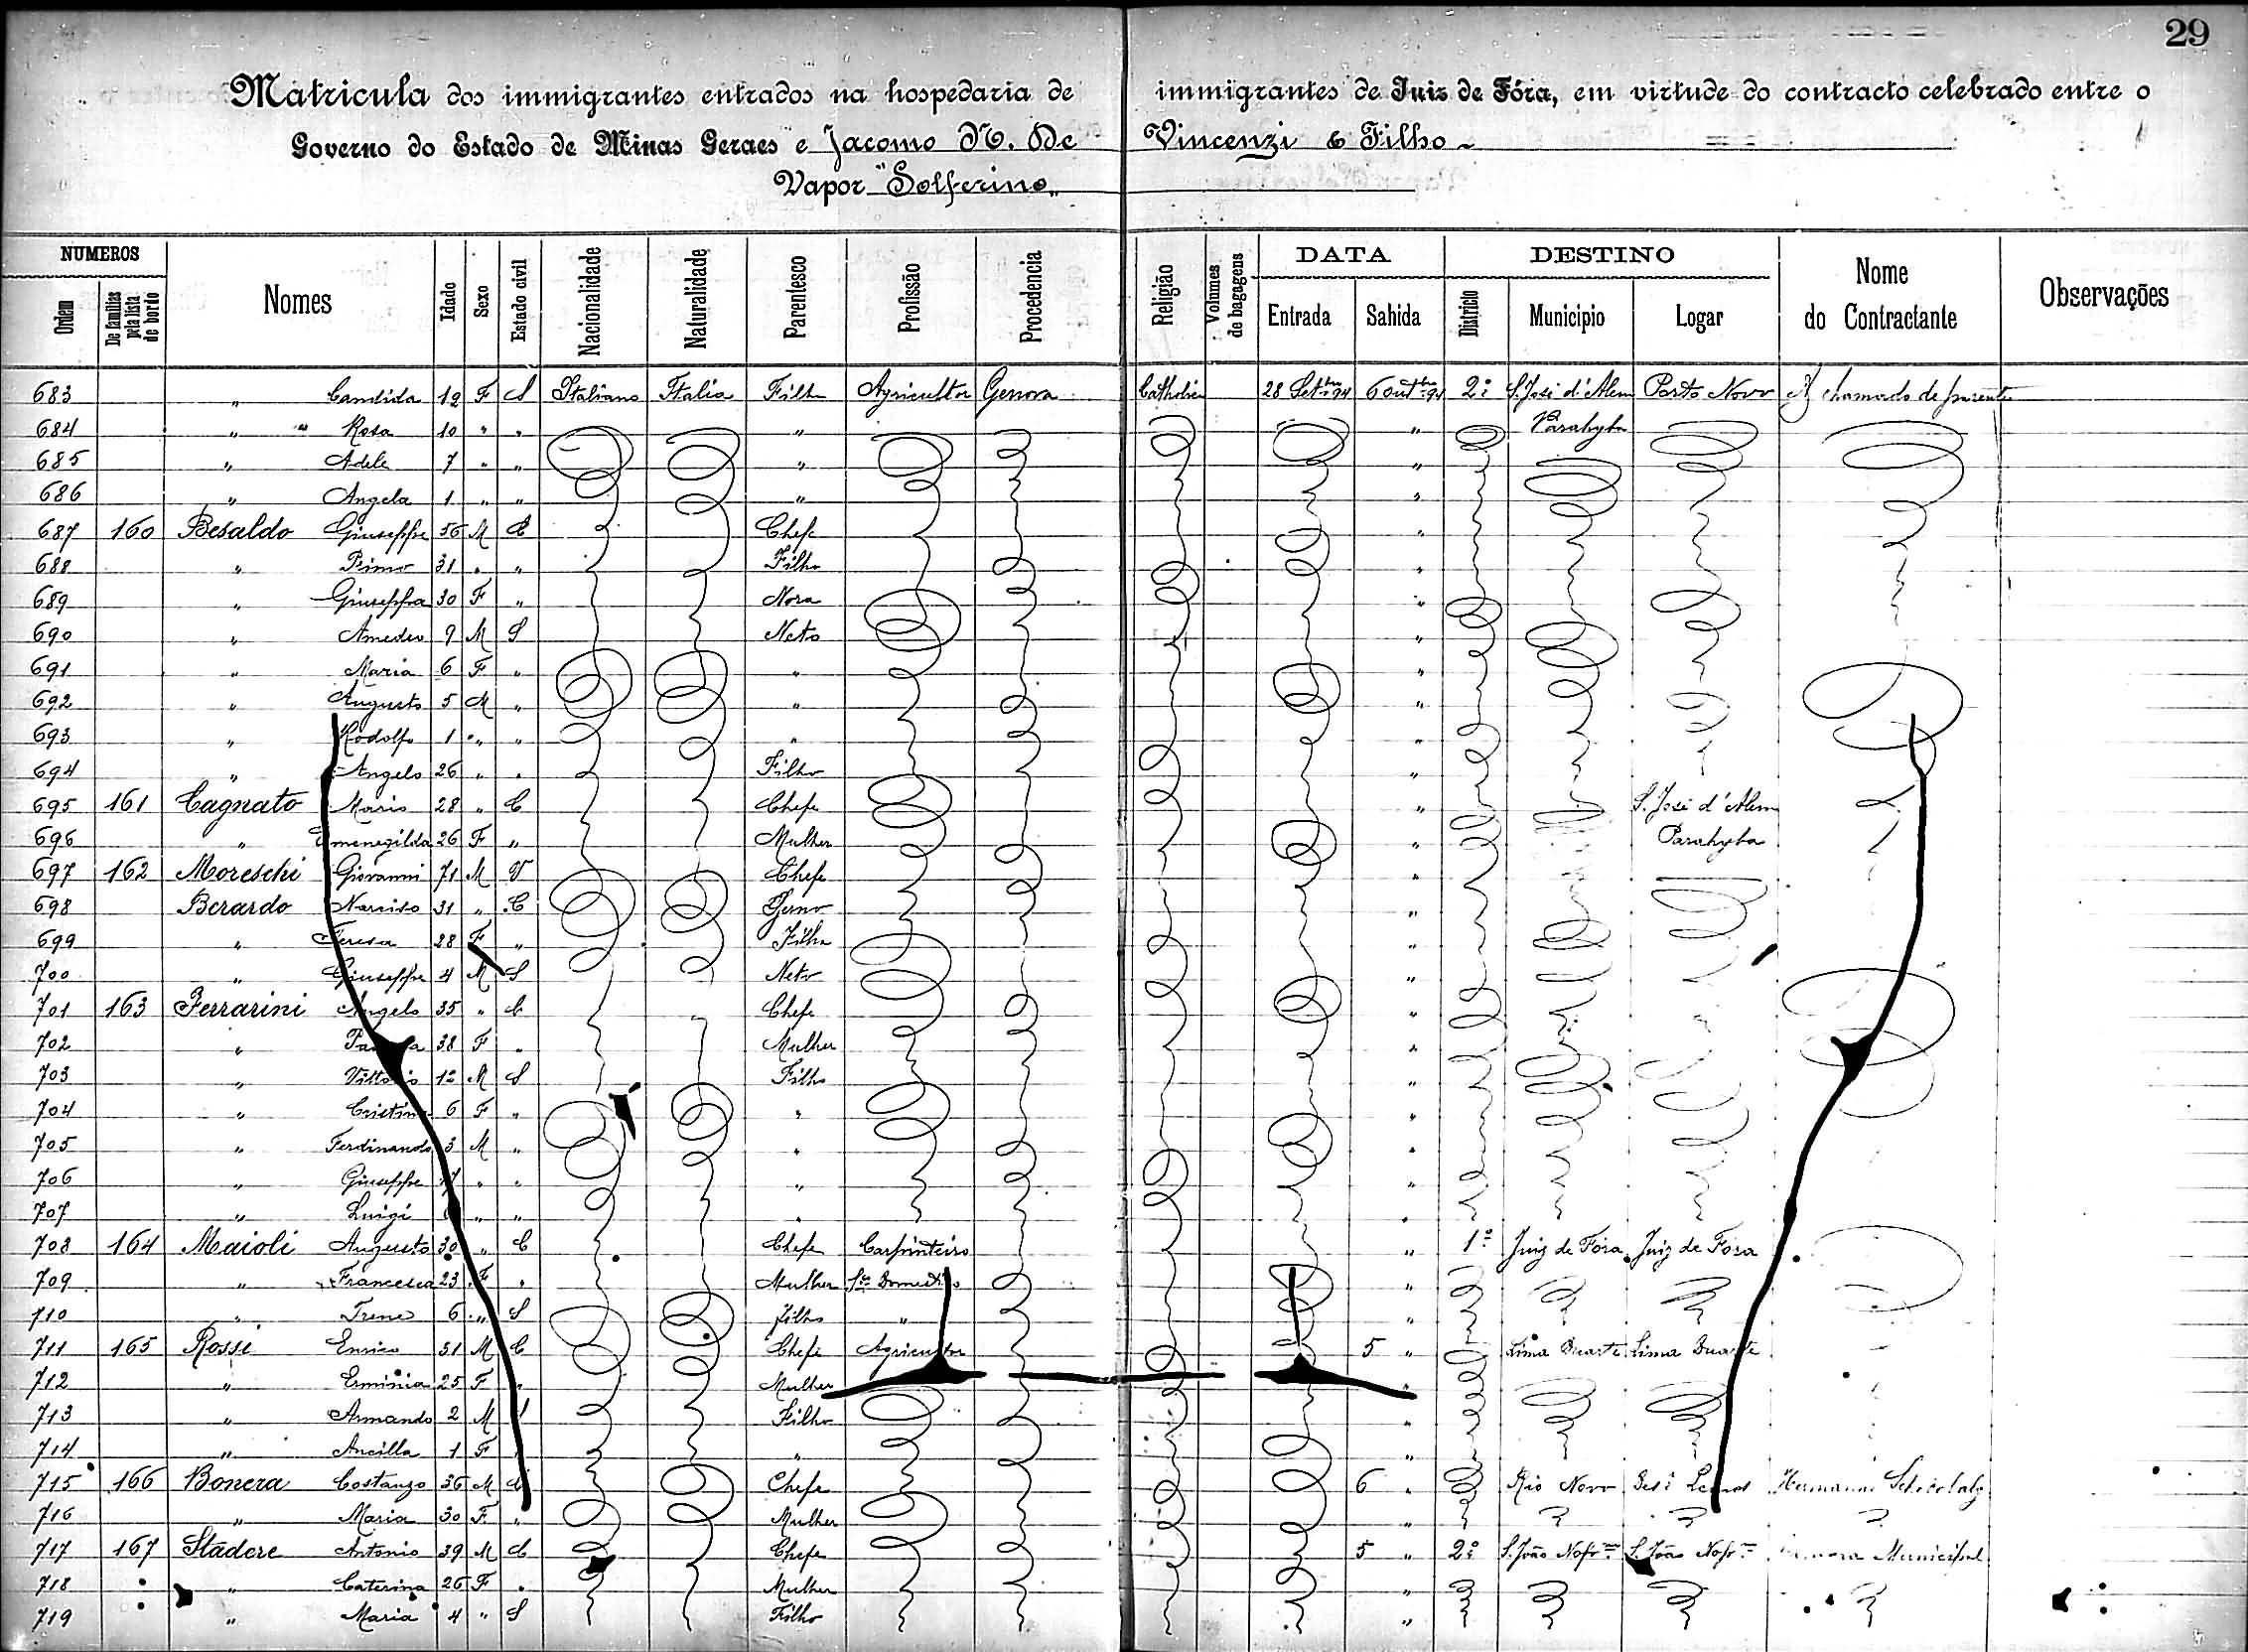 29
Matricula dos immigrantes entrados na hospedaria de immigrantes de Juiz de Fóra, em virtude do contracto celebrado entre o
Governo do Estado de Minas Geraes e Jacomo N. De Vincenzi & Filho
Vapor "Solferino"
NUMEROS DATA DESTINO
Ordem De familias pela lista de bordo Nomes Idade Sexo Estado civil Nacionalidade Naturalidade Parentesco Profissão Procedencia Religião Volumes de bagagens Entrada Sahida Districto Municipio Logar Nome do Contractante Observações
683 " Candida 12 F S Italiana Italia Filha Agricultor Genova Catholica 28 Setbro 94 6 outbro 94 2º S. José d'Alem Porto Novo A chamado de parente
684 " " Rosa 10 " " " " Parahyba
685 " Adele 7 " " " "
686 " Angela 1 " " " "
687 160 Besaldo Giuseppe 56 M C Chefe "
688 " Primo 31 " " Filho "
689 " Giuseppa 30 F " Nora "
690 " Amedeo 9 M S Neto "
691 " Maria 6 F " " "
692 " Augusto 5 M " " "
693 " Rodolfo 1 " " " "
694 " Angelo 26 " " Filho "
695 161 Cagnato Mario 28 " C Chefe " S. José d'Alem
696 " Ermenegilda 26 F " Mulher Parahyba
697 162 Moreschi Giovanni 71 M V Chefe "
698 Berardo Narciso 31 " C Genro "
699 " Teresa 28 F " Filha "
700 " Giuseppe 4 M S Neto "
701 163 Ferrarini Angelo 35 " C Chefe "
702 " 38 F " Mulher "
703 " Vittorio 12 M S Filho "
704 " Cristina 6 F " " "
705 " Ferdinando 3 M " " "
706 " Giuseppe " " " "
707 " Luigi " " " "
708 164 Maioli Augusto 30 " C Chefe Carpinteiro " 1º Juiz de Fóra Juiz de Fóra
709 " Francesca 23 F " Mulher Sço Domestico "
710 " Irene 6 " S Filha " "
711 165 Rossi Enrico 31 M C Chefe Agricultor 5 " Lima Duarte Lima Duarte
712 " Erminia 25 F " Mulher "
713 " Armando 2 M S Filho "
714 " Ancilla 1 F " " "
715 166 Bonera Costanzo 36 M C Chefe 6 " Rio Novo
716 " Maria 30 F " Mulher "
717 167 Stadere Antonio 39 M C Chefe 5 " 2º S. João Nepce S. João Nepce Municipal
718 " Caterina 26 F " Mulher "
719 " Maria 4 " S Filho "